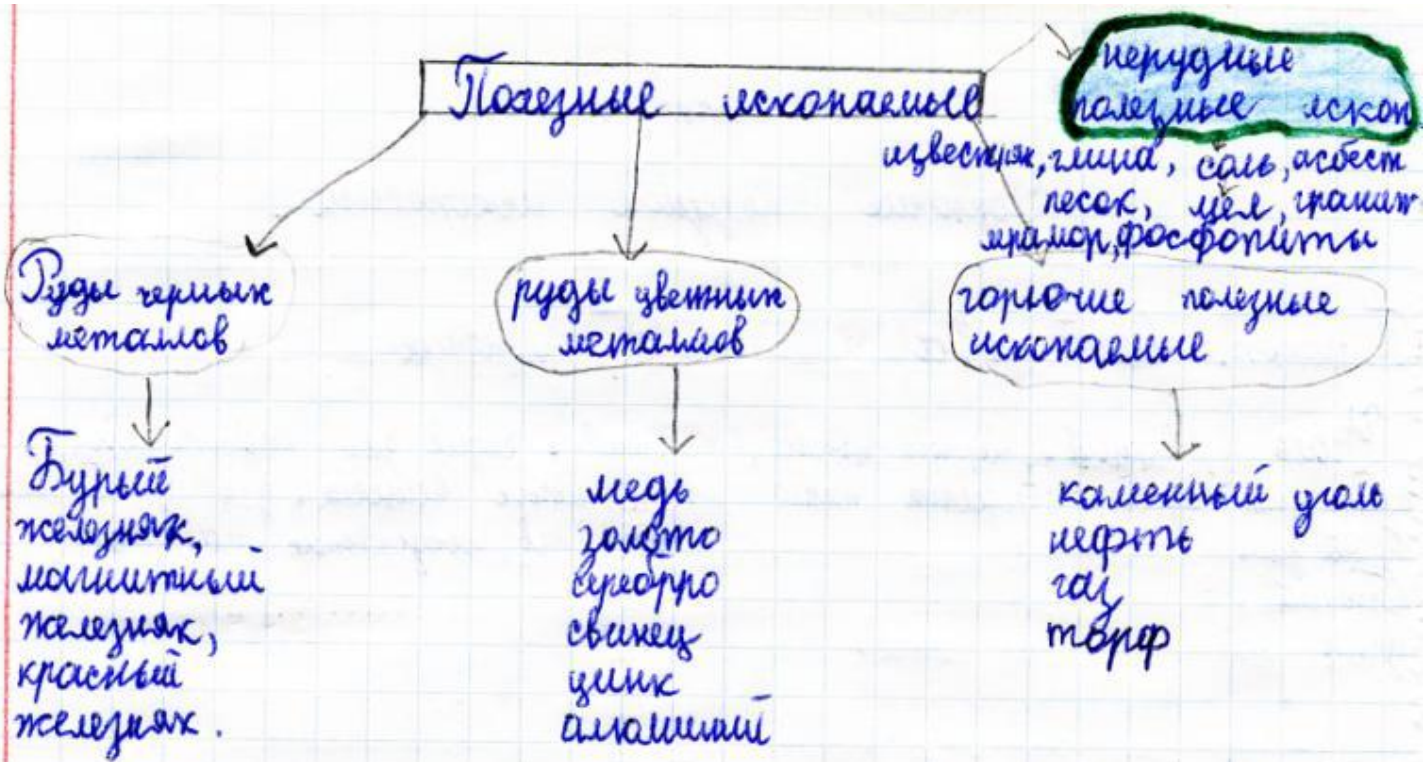 Полезные ископаемые
нерудные
полезные ископ.
известняк, глина, соль, асбест
песок, мел, гранит
мрамор, фосфориты
Руды черных
металлов
руды цветных
металлов
горючие полезные
ископаемые
Бурый
железняк,
магнитный
железняк,
красный
железняк.
медь
золото
серебро
свинец
цинк
алюминий
каменный уголь
нефть
газ
торф